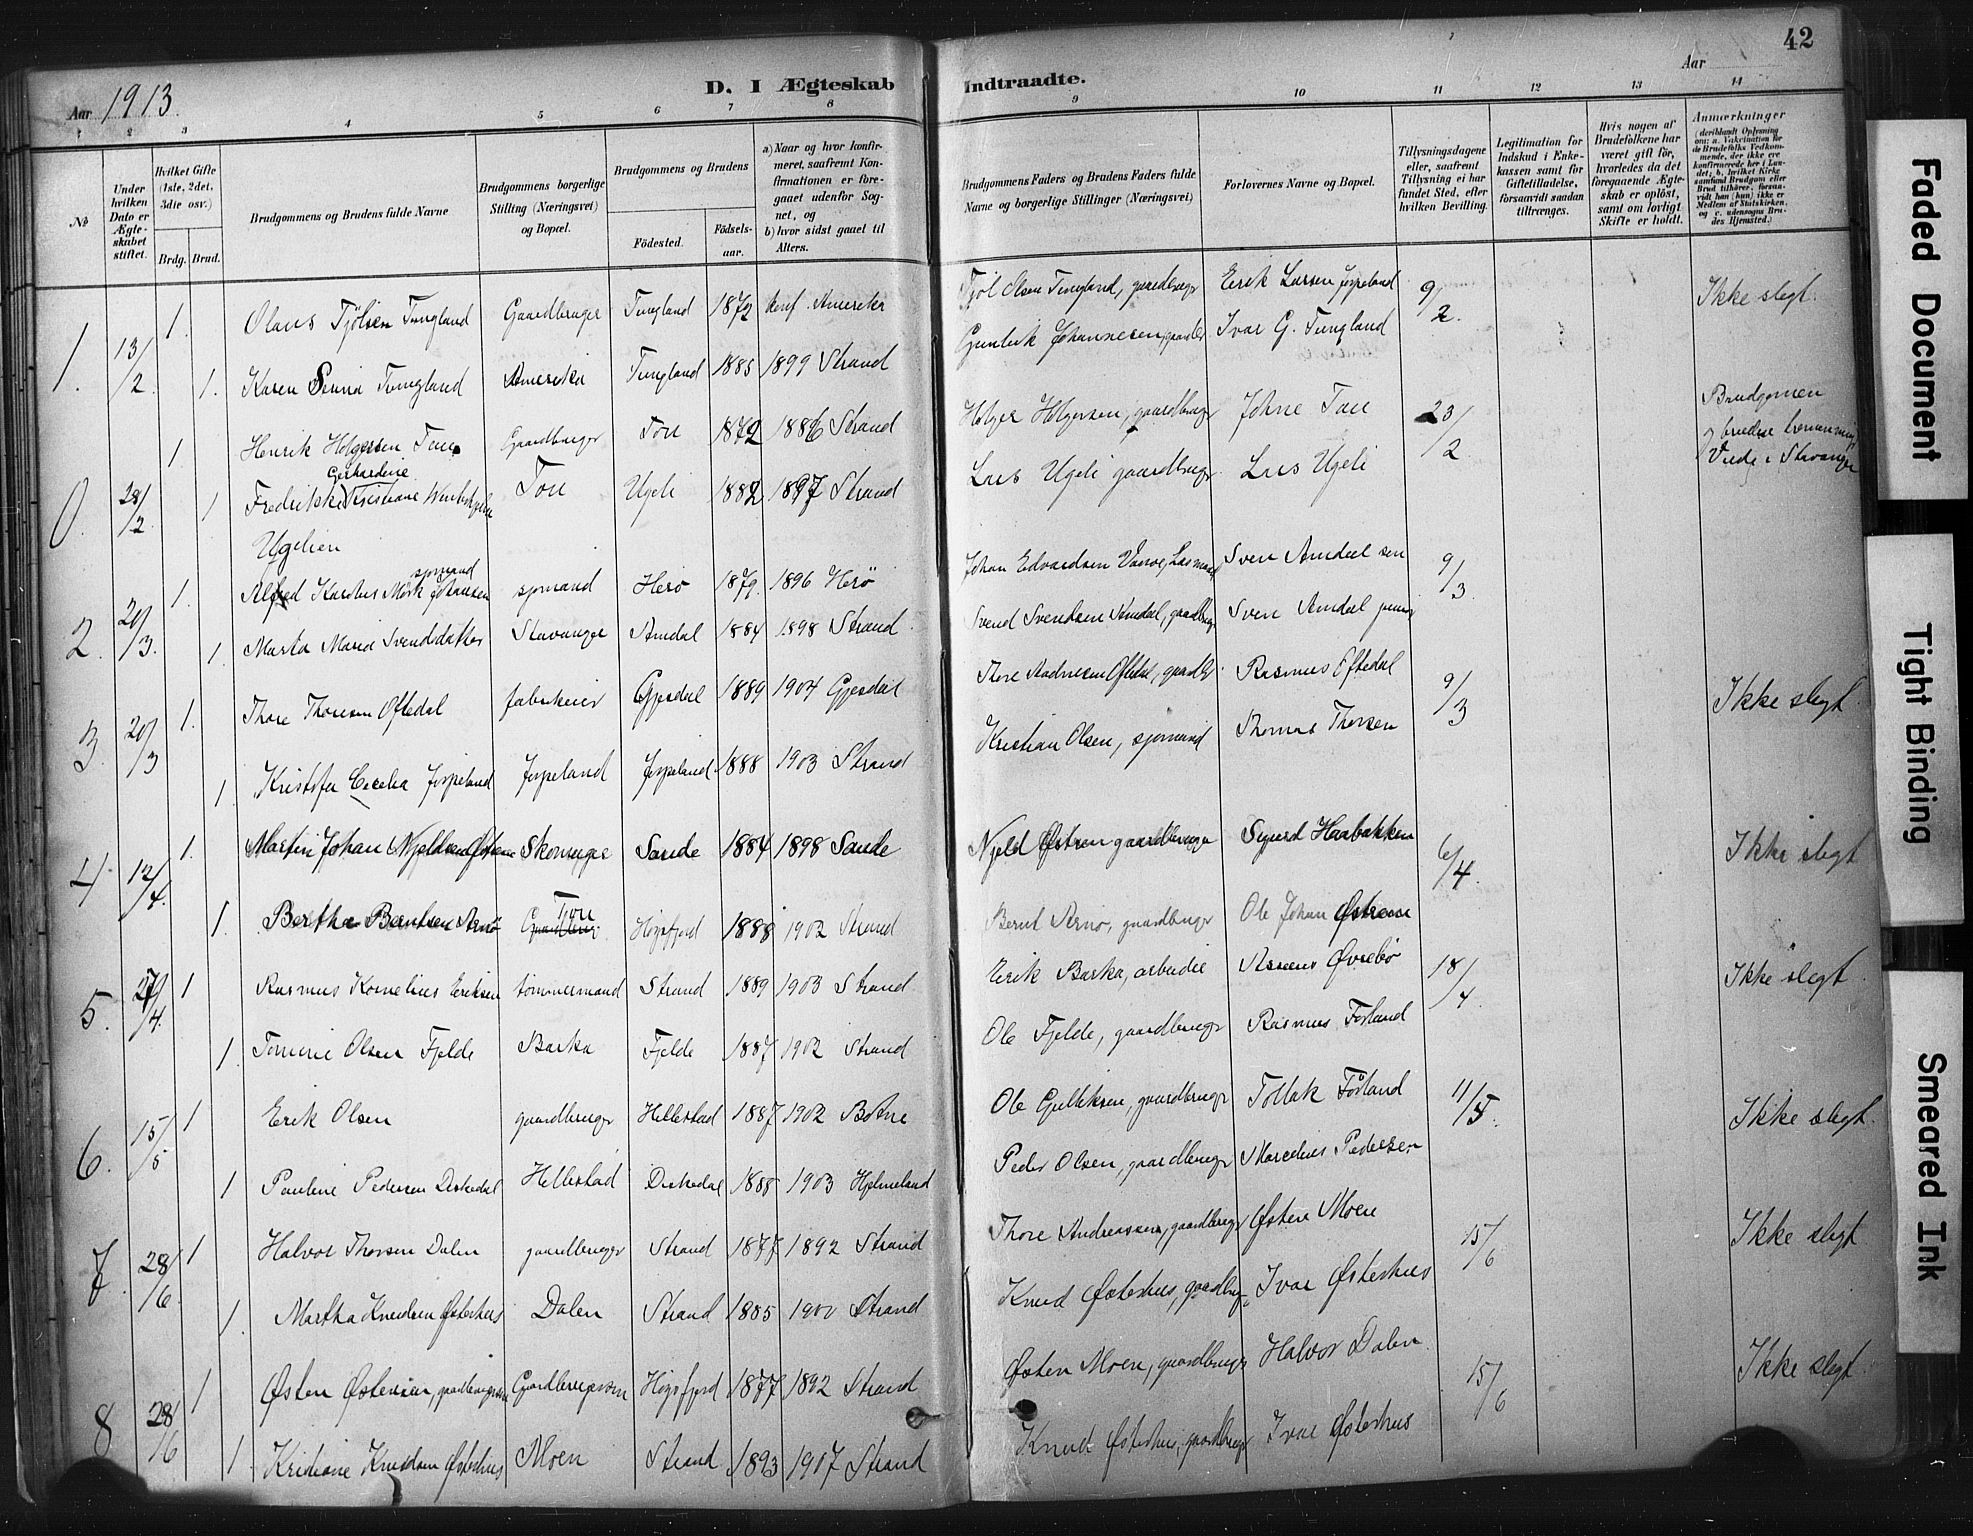 Aar 1913.
D. I Ægteskab Indtraadte.
Aar
42
1 2 3 4 5 6 7 8 9 10 11 12 13 14
No
Under hvilken Dato er Ægteskabet stiftet.
Hvilket Gifte (1ste, 2det, 3die osv.)
Brdg. Brud.
Brudgommens og Brudens fulde Navne
Brudgommens borgerlige Stilling (Næringsvei) og Bopæl.
Brudgommens og Brudens
Födested.
Födsels-aar.
a) Naar og hvor konfirmeret, saafremt Konfirmationen er foregaaet udenfor Sognet, og
b) hvor sidst gaaet til Alters.
Brudgommens Faders og Brudens Faders fulde Navne og borgerlige Stillinger (Næringsvei)
Forlovernes Navne og Bopæl.
Tillysningsdagene eller, saafremt Tillysning ei har fundet Sted, efter hvilken Bevilling.
Legitimation for Indskud i Enkekassen samt for Giftetilladelse, forsaavidt saadan tiltrænges.
Hvis nogen af Brudefolkene har været gift för, hvorledes da det foregaaende Ægteskab er oplöst, samt om lovligt Skifte er holdt.
Anmærkninger
1. 13/2 1. Olaus Tjölsen Tungland Gaardbruger Tungland 1872 Konf. Amerika Tjöl Olsen Tungland, gaardbrugr Erik Larsen Jørpeland 9/2. Ikke slegt.
1. Karen Tungland Amerika Tungland 1885 1899 Strand Gunleik Johannesen, gaardbr Ivar G. Tungland
0 28/2 1 Henrik Holgersen Tau Gaardbruger Tou 1872 1886 Strand Holger Holgersen, gaardbrugr Johne Tau 23/2 Brudgomen
1 Fredrikke Gerhardine Kristiane Ugelien Tou Ugeli 1882 1897 Strand Lars Ugeli gaardbrugr. Lars Ugeli
2. 20/3. 1. Alfred Mørk Johansen sjømand sjømand Herø 1879. 1896 Herø Johan Edvardsen Sven Amdal sen 9/3.
1. Marta Maria Svendsdatter Stavanger Amdal 1884 1898 Strand. Svend Svendsen Amdal, gaardbrugr Sven Amdal junior
3. 20/3 1. Thore Thoresen Oftedal fabrikeier Gjesdal 1889 1904 Gjesdal Thore Oftedal, gaardbr Rasmus Oftedal 9/3 Ikke slegt
1. Cecelia Jørpeland Jørpeland Jørpeland 1888 1903 Strand Kristian Olsen, sjømand Thomas Thorsen
4. 12/4. 1. Martin Johan Njeldsen Østrem Skomager Sande 1884 1898 Sande Njeld Østrem gaardbruger Sigurd Haabakken 6/4. Ikke slegt
1. Bertha Berntsen Arnø Tou Høgsfjord 1888 1902 Strand Bernt Arnø, gaardbruger Ole Johan Østrem
5. 27/4. 1 Rasmus Kornelius Eriksen tømmermand Strand 1889 1903 Strand Erik Barka, arbeider Øvrebø 18/4 Ikke slegt
1 Tomine Olsen Fjelde Barka Fjelde 1887 1902 Strand Ole Fjelde, gaardbrugr Rasmus Førland
6. 15/5 1 Erik Olsen gaardbruger Hellestad 1887 1902 Bokne Ole Gulliksen, gaardbrugr Tollak Førland 11/5. Ikke slegt.
1 Pauline Pedersen Hellestad 1888 1903 Hjelmeland Peder Olsen, gaardbrugr Marcelius Pedersen
7. 28/6. 1 Halvor Thorsen Dalen gaardbruger Strand 1877 1892 Strand Thore Andreassen, gaardbrugr Østen Moen 15/6 Ikke slegt
1. Martha Knudsen Østerhus Dalen Strand 1885 1900 Strand Knud Østerhus, gaardbrug. Ivar Østerhus
8 28/6 1 Østen Østensen, gaardbrugersøn Gaardbrugersøn Høgsfjord 1877 1892 Strand Østen Moen, gaardbruger Halvor Dalen 15/6 Ikke slegt.
1. Kristiane Knudsen Østerhus Moen Strand 1893 1907 Strand Knud Østerhus, gaardbrugr Ivar Østerhus
Faded Document
Tight Binding
Smeared Ink